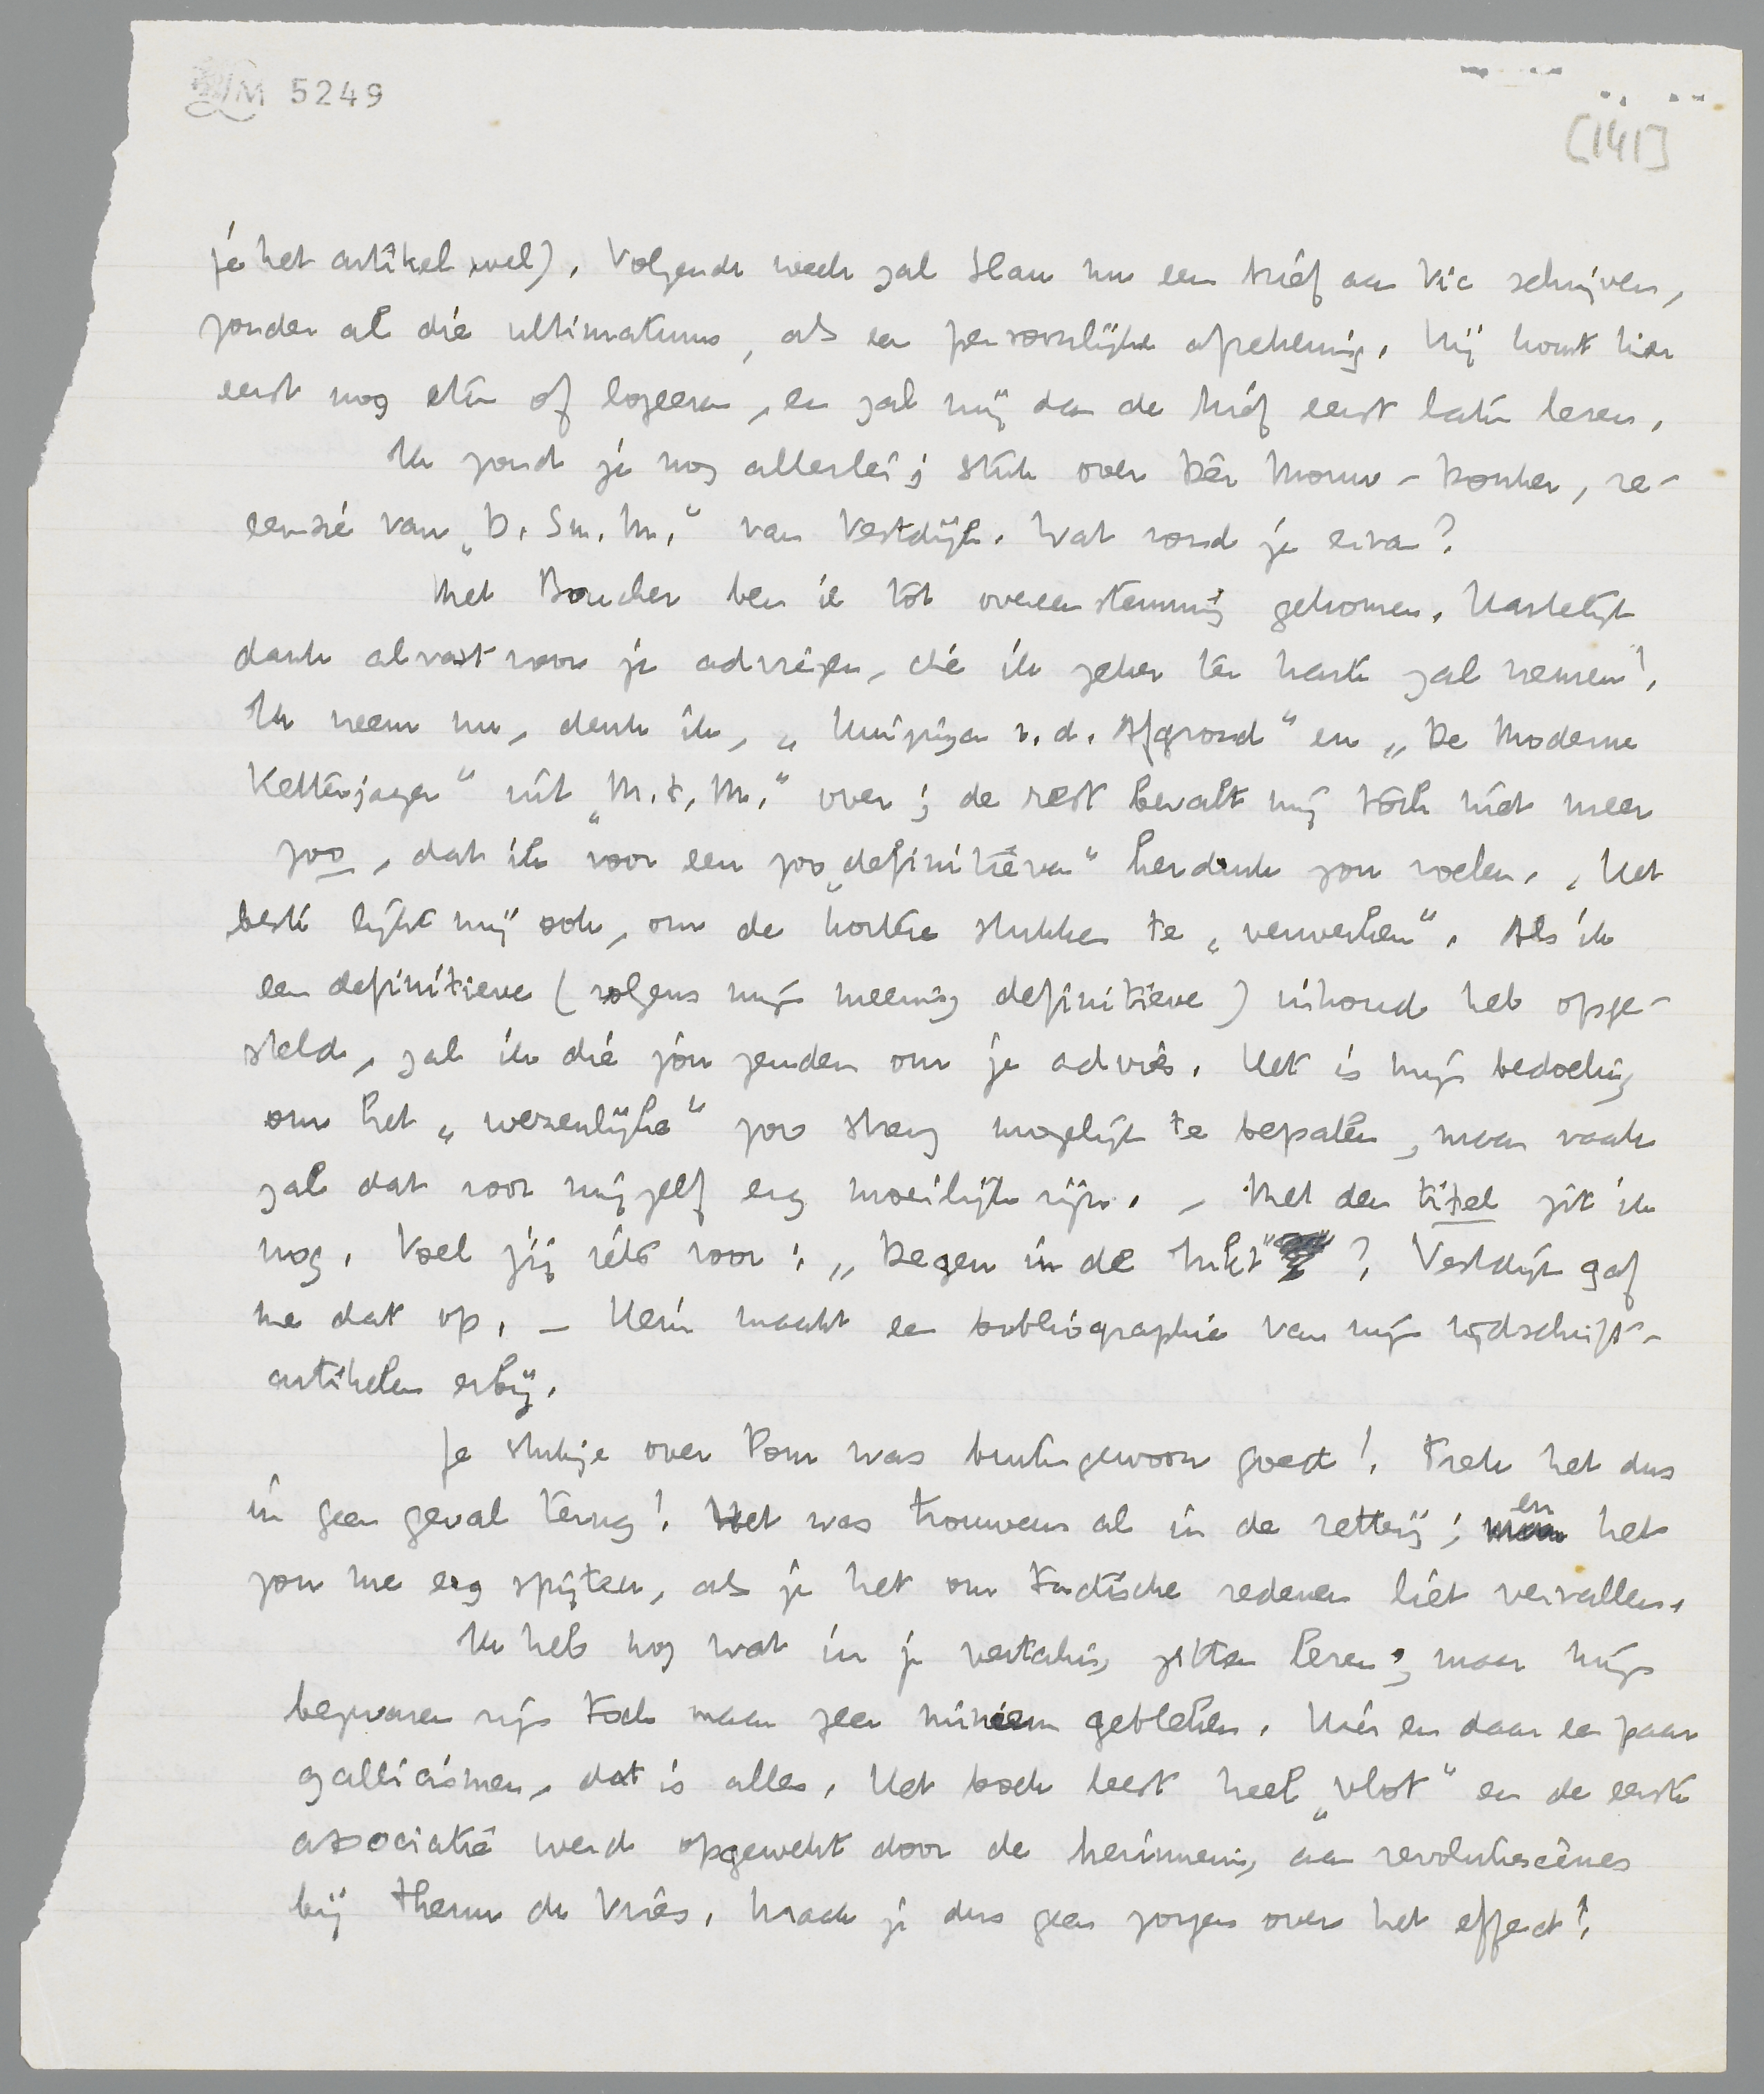 LM 5249
[141]
je het artikel wel). Volgende week zal Slau nu een brief aan Vic schrijven,
zonder al die ultimatums, als een persoonlijke afrekening. Hij komt hier
eerst nog eten of logeeren, en zal mij dan de brief eerst laten lezen.
Ik zond je nog allerlei; stuk over Dèr Mouw-Donker, re-
censie van „D. Sm. M." van Vestdijk. Wat vond je ervan?
Met Boucher ben ik tot overeenstemming gekomen. Hartelijk
dank alvast voor je adviezen, die ik zeker ter harte zal nemen!
Ik neem nu, denk ik, „Huizinga v.d. Afgrond" en „De Moderne
Ketterjager" uit „M.t.M." over; de rest bevalt mij toch niet meer
zoo, dat ik voor een zoo „definitieven" herdruk zou voelen. Het
beste lijkt mij ook, om de kortere stukken te „verwerken". Als ik
een definitieve (volgens mijn meening definitieve) inhoud heb opge-
steld, zal ik die jou zenden om je advies. Het is mijn bedoeling
om het „wezenlijke" zoo streng mogelijk te bepalen, maar vaak
zal dat voor mijzelf erg moeilijk zijn. – Met den titel zit ik
nog. Voel jij iets voor: „Degen in de Lucht"? Vestdijk gaf
me dat op. – Hein maakt een bibliographie van mijn tijdschrift-
artikelen erbij.
Je stukje over Pom was buitengewoon goed! Trek het dus
in geen geval terug! Het was trouwens al in de zetterij; en het
zou me erg spijten, als je het om tactische redenen liet vervallen.
Ik heb nog wat in je vertaling zitten lezen, maar mijn
bezwaren zijn toch maar zeer miniem gebleken. Hier en daar een paar
gallicismen, dat is alles. Het boek leest heel „vlot" en de eerste
associatie werd opgewekt door de herinnering aan revolutiescènes
bij Theun de Vries. Maak je dus geen zorgen over het effect!